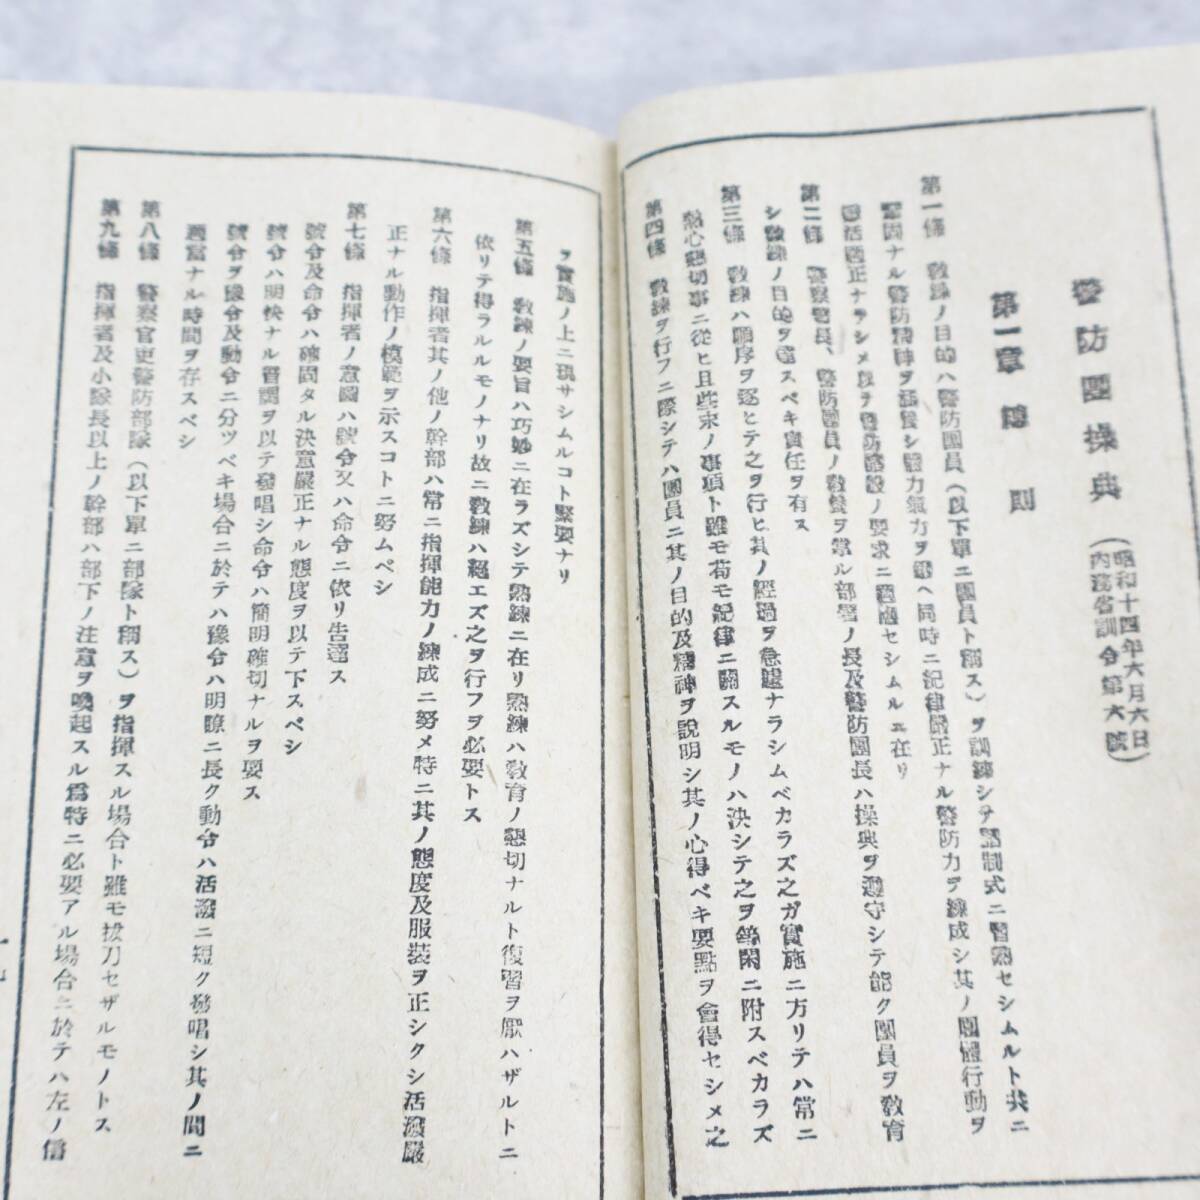 警防團操典（昭和十四年六月六日
內務省訓令第六號）
第一章 總則
第一條 敎練ノ目的ハ警防團員（以下單ニ團員ト稱ス）ヲ訓練シテ諸制式ニ習熟セシムルト共ニ
鞏固ナル警防精神ヲ涵養シ體力氣力ヲ鍛ヘ同時ニ紀律嚴正ナル警防力ヲ練成シ其ノ團體行動ヲ
適正ナラシメ以テ警防諸般ノ要求ニ適應セシムルニ在リ
第二條 警察署長、警防團員ノ敎養ヲ掌ル部署ノ長及警防團長ハ操典ヲ遵守シテ能ク團員ヲ敎育
シ敎練ノ目的ヲ達スベキ責任ヲ有ス
第三條 敎練ハ順序ヲ逐ヒテ之ヲ行ヒ其ノ經過ヲ急遽ナラシムベカラズ之ガ實施ニ方リテハ常ニ
熱心懇切事ニ從ヒ且些末ノ事項ト雖モ苟モ紀律ニ關スルモノハ決シテ之ヲ等閑ニ附スベカラズ
第四條 敎練ヲ行フニ際シテハ團員ニ其ノ目的及精神ヲ說明シ其ノ心得ベキ要點ヲ會得セシメ之
ヲ實施ノ上ニ現サシムルコト緊要ナリ
第五條 敎練ノ要旨ハ巧妙ニ在ラズシテ熟練ニ在リ熟練ハ敎育ノ懇切ナルト復習ヲ厭ハザルトニ
依リテ得ラルルモノナリ故ニ敎練ハ絕エズ之ヲ行フヲ必要トス
第六條 指揮者其ノ他ノ幹部ハ常ニ指揮能力ノ練成ニ努メ特ニ其ノ態度及服裝ヲ正シクシ活潑嚴
正ナル動作ノ模範ヲ示スコトニ努ムベシ
第七條 指揮者ノ意圖ハ號令又ハ命令ニ依リ告達ス
號令及命令ハ確固タル決意嚴正ナル態度ヲ以テ下スベシ
號令ハ明快ナル音調ヲ以テ發唱シ命令ハ簡明確切ナルヲ要ス
號令ヲ豫令及動令ニ分ツベキ場合ニ於テハ豫令ハ明瞭ニ長ク動令ハ活潑ニ短ク發唱シ其ノ間ニ
適當ナル時間ヲ存スベシ
第八條 警察官吏警防部隊（以下單ニ部隊ト稱ス）ヲ指揮スル場合ト雖モ拔刀セザルモノトス
第九條 指揮者及小隊長以上ノ幹部ハ部下ノ注意ヲ喚起スル爲特ニ必要アル場合ニ於テハ左ノ信